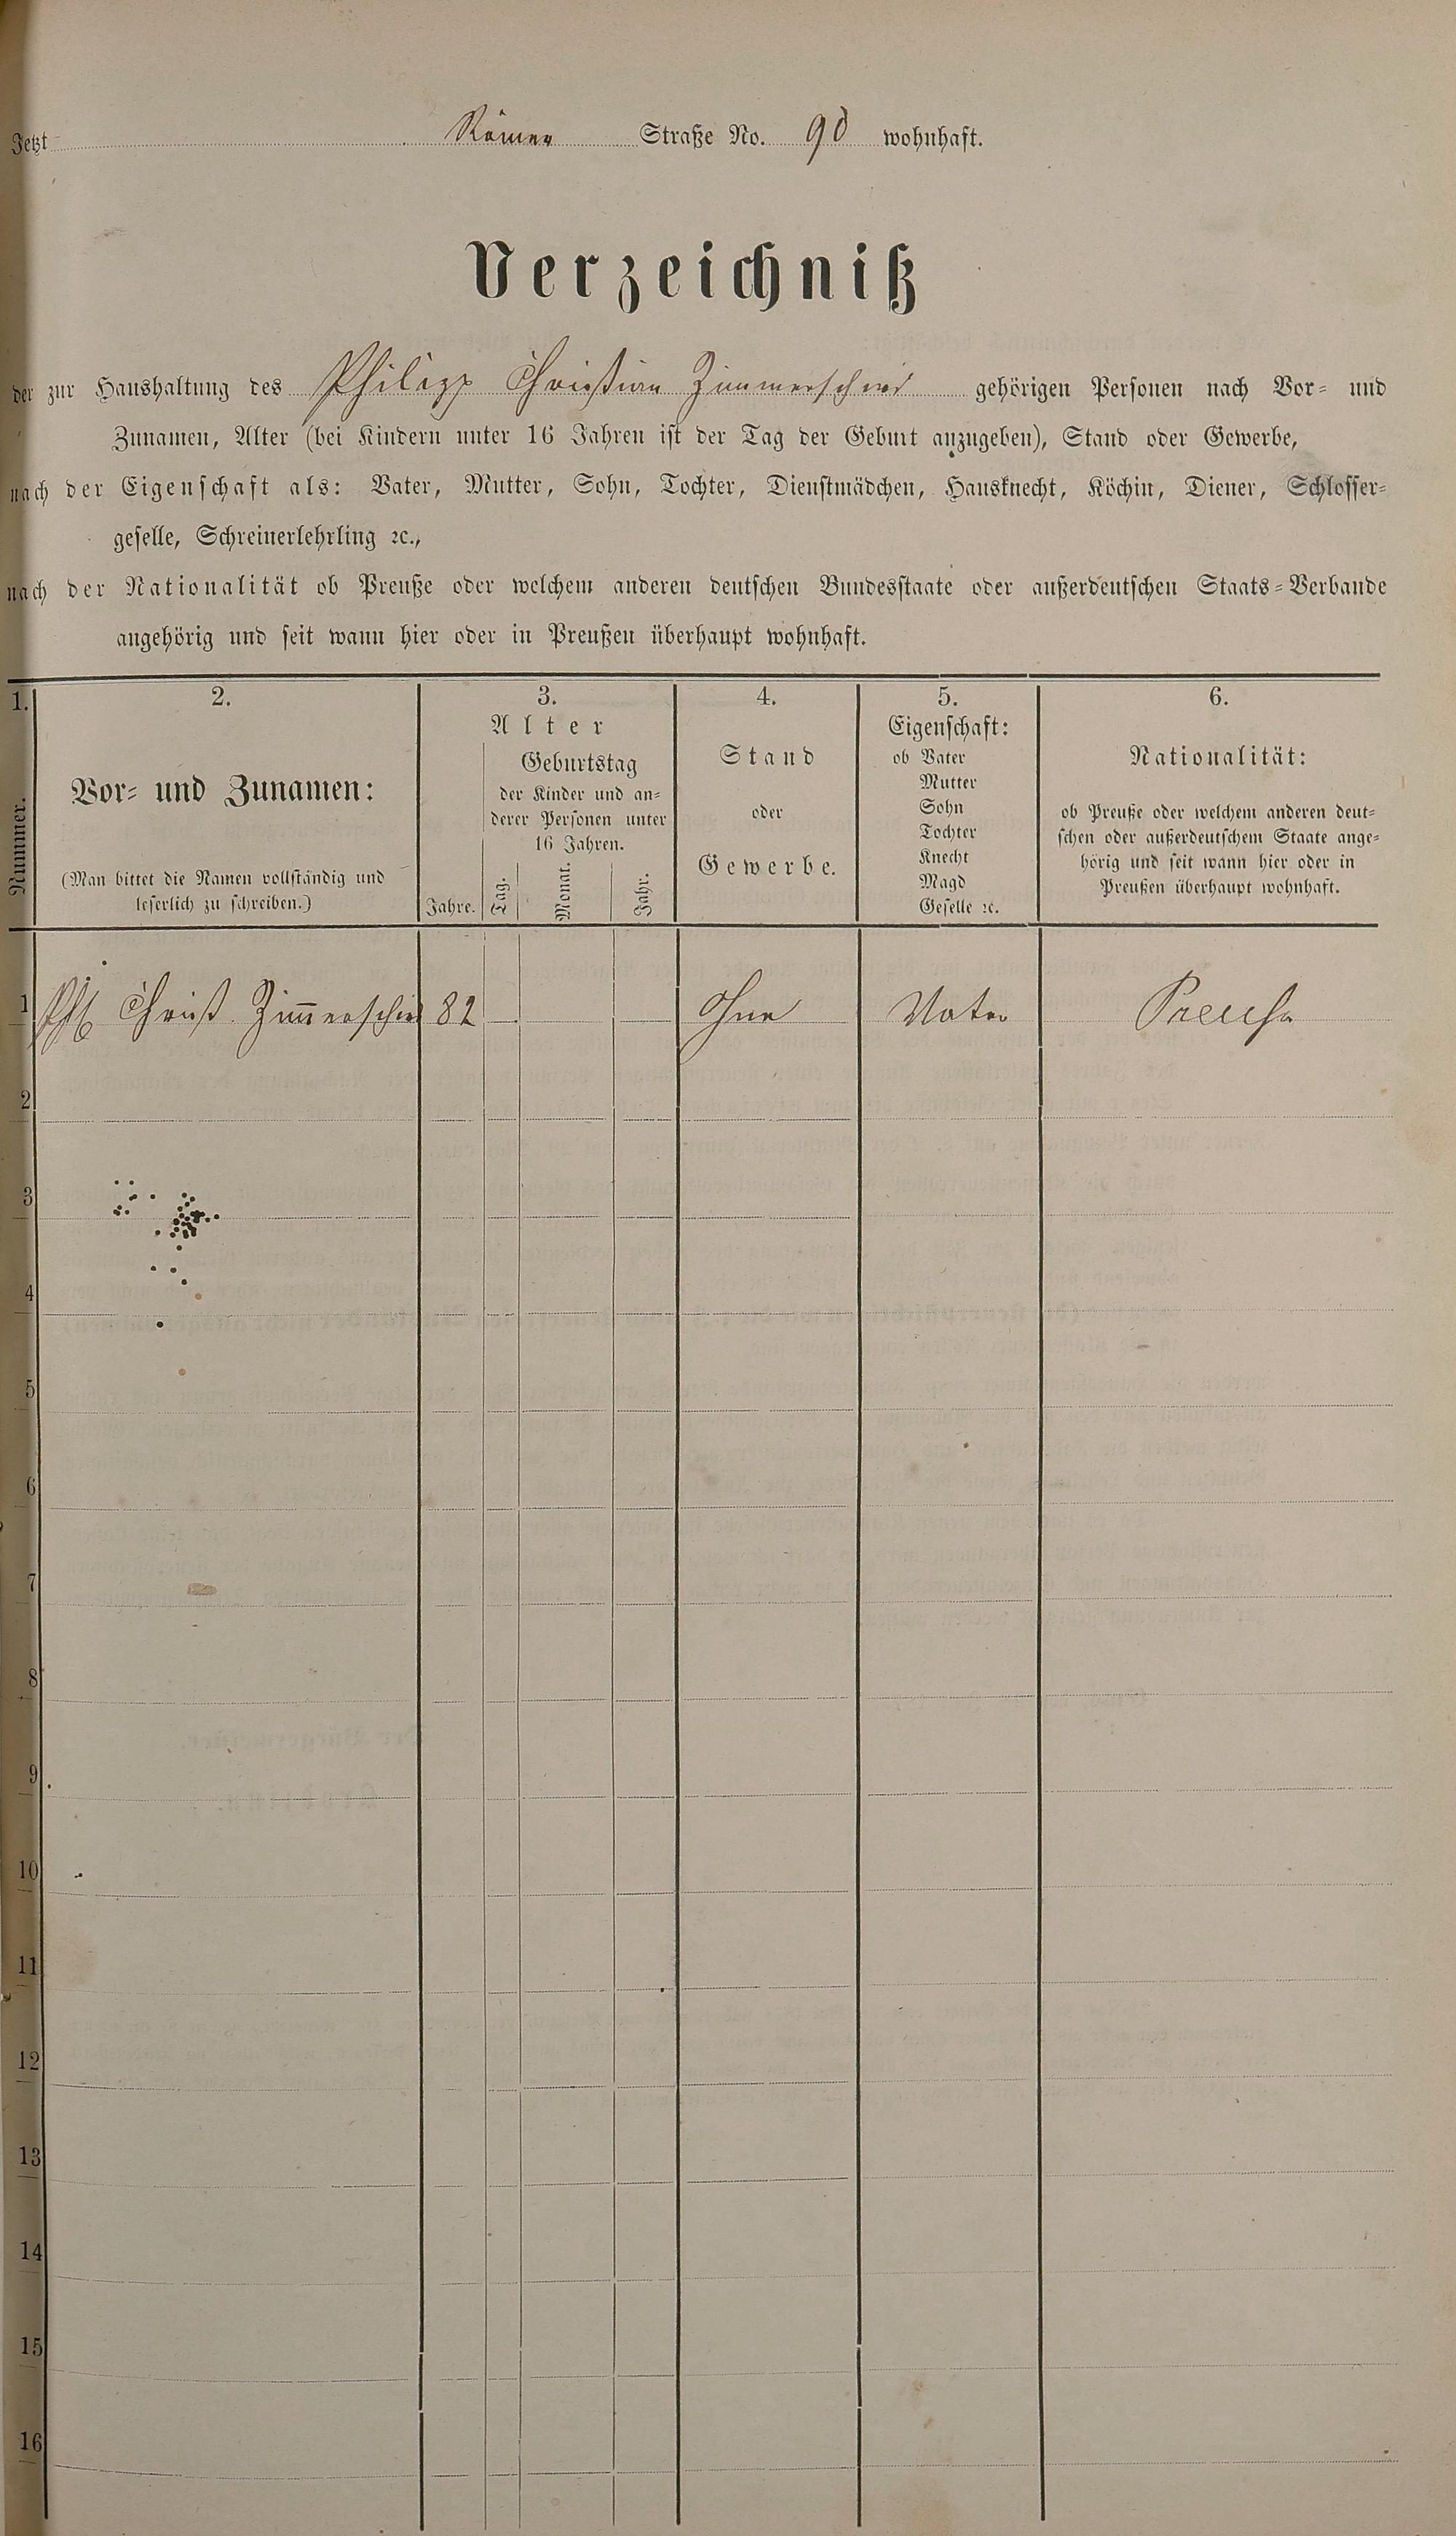 Jetzt Römer Straße No. 90 wohnhaft.
Verzeichniß
der zur Haushaltung des Philipp Christian Zimmerschied gehörigen Personen nach Vor- und
Zunamen, Alter (bei Kindern unter 16 Jahren ist der Tag der Geburt anzugeben), Stand oder Gewerbe,
nach der Eigenschaft als: Vater, Mutter, Sohn, Tochter, Dienstmädchen, Hausknecht, Köchin, Diener, Schlosser-
geselle, Schreinerlehrling ꝛc.,
nach der Nationalität ob Preuße oder welchem anderen deutschen Bundesstaate oder außerdeutschen Staats-Verbande
angehörig und seit wann hier oder in Preußen überhaupt wohnhaft.
1.
Nummer.
2.
Vor- und Zunamen:
(Man bittet die Namen vollständig und
leserlich zu schreiben.)
3.
Alter
Jahre.
Geburtstag
der Kinder und an-
derer Personen unter
16 Jahren.
Tag.
Monat.
Jahr.
4.
Stand
oder
Gewerbe.
5.
Eigenschaft:
ob Vater
Mutter
Sohn
Tochter
Knecht
Magd
Geselle ꝛc.
6.
Nationalität:
ob Preuße oder welchem anderen deut-
schen oder außerdeutschem Staate ange-
hörig und seit wann hier oder in
Preußen überhaupt wohnhaft.
1 Christ Zim̅erschied 82 Ohne Vater Preuße
2
3
4
5
6
7
8
9
10
11
12
13
14
15
16